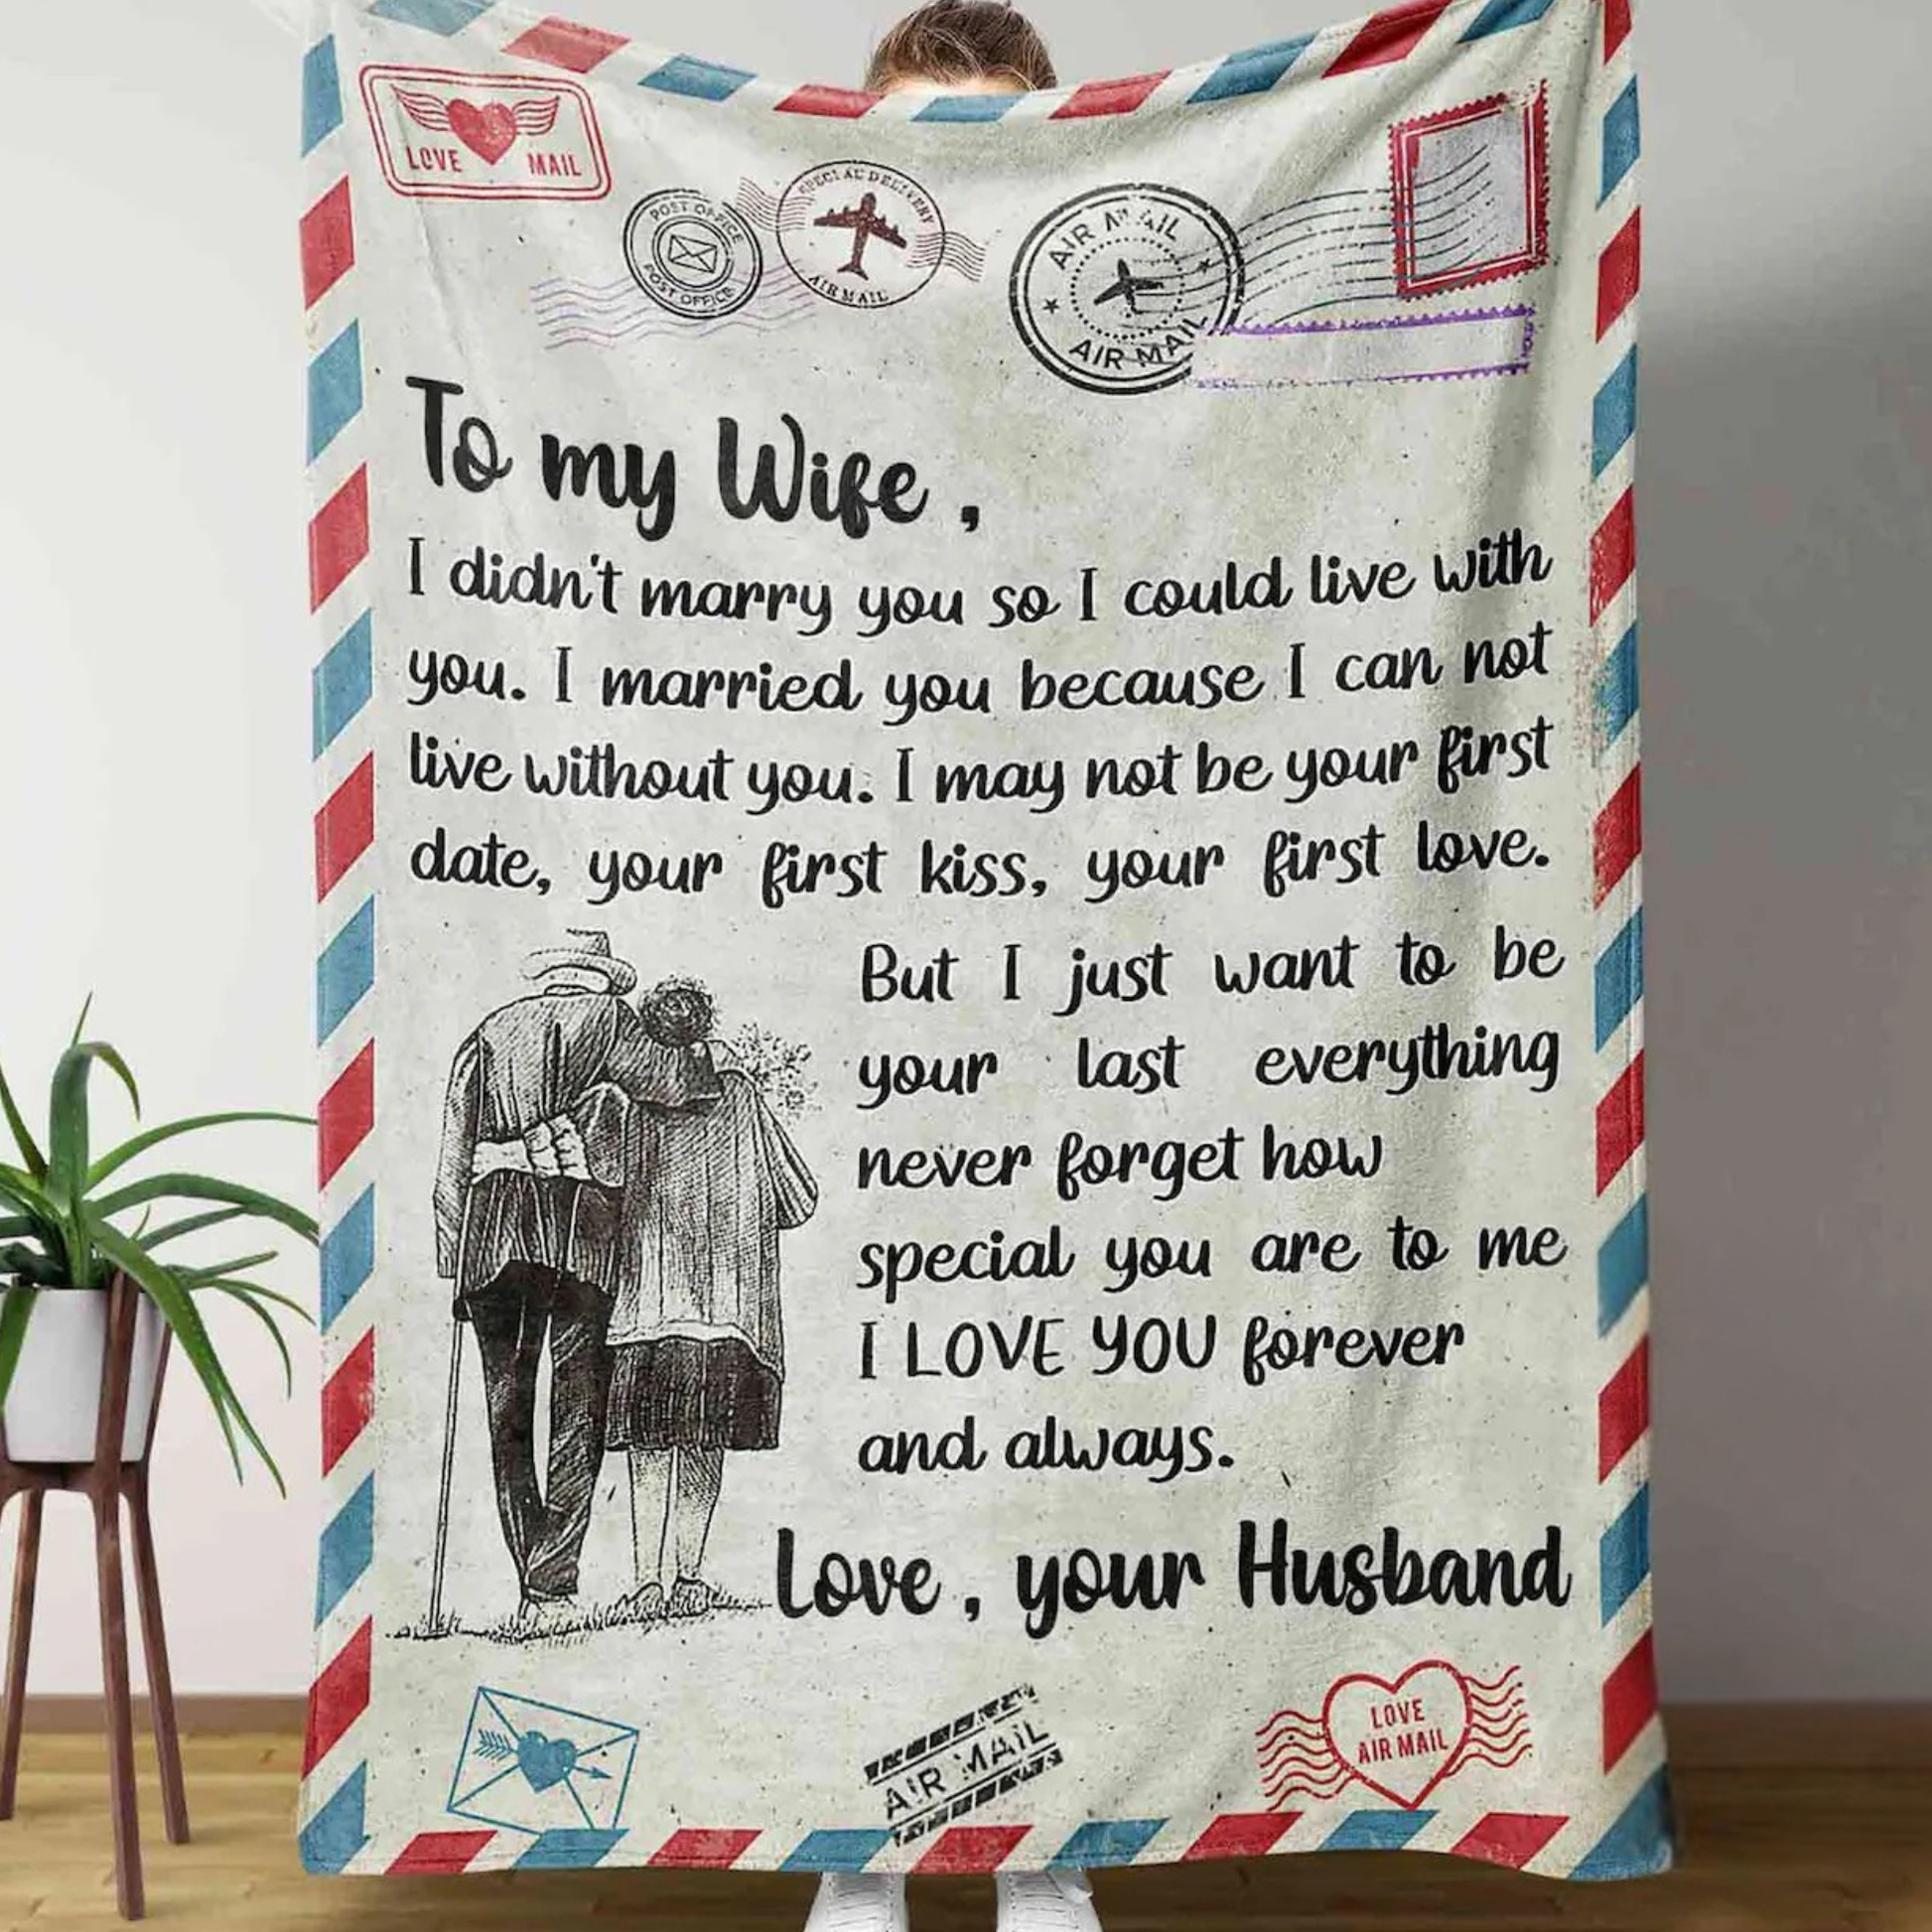 LOVE MAIL
POST OFFICE
POST OFFICE
SPECIAL DELIVERY
AIR MAIL
AIR MAIL
AIR MAIL
To my Wife ,
I didn't marry you so I could live with
you. I married you because I can not
live without you. I may not be your first
date, your first kiss, your first love.
But I just want to be
your last everything
never forget how
special you are to me
I LOVE YOU forever
and always.
Love , your Husband
AIR MAIL
LOVE
AIR MAIL